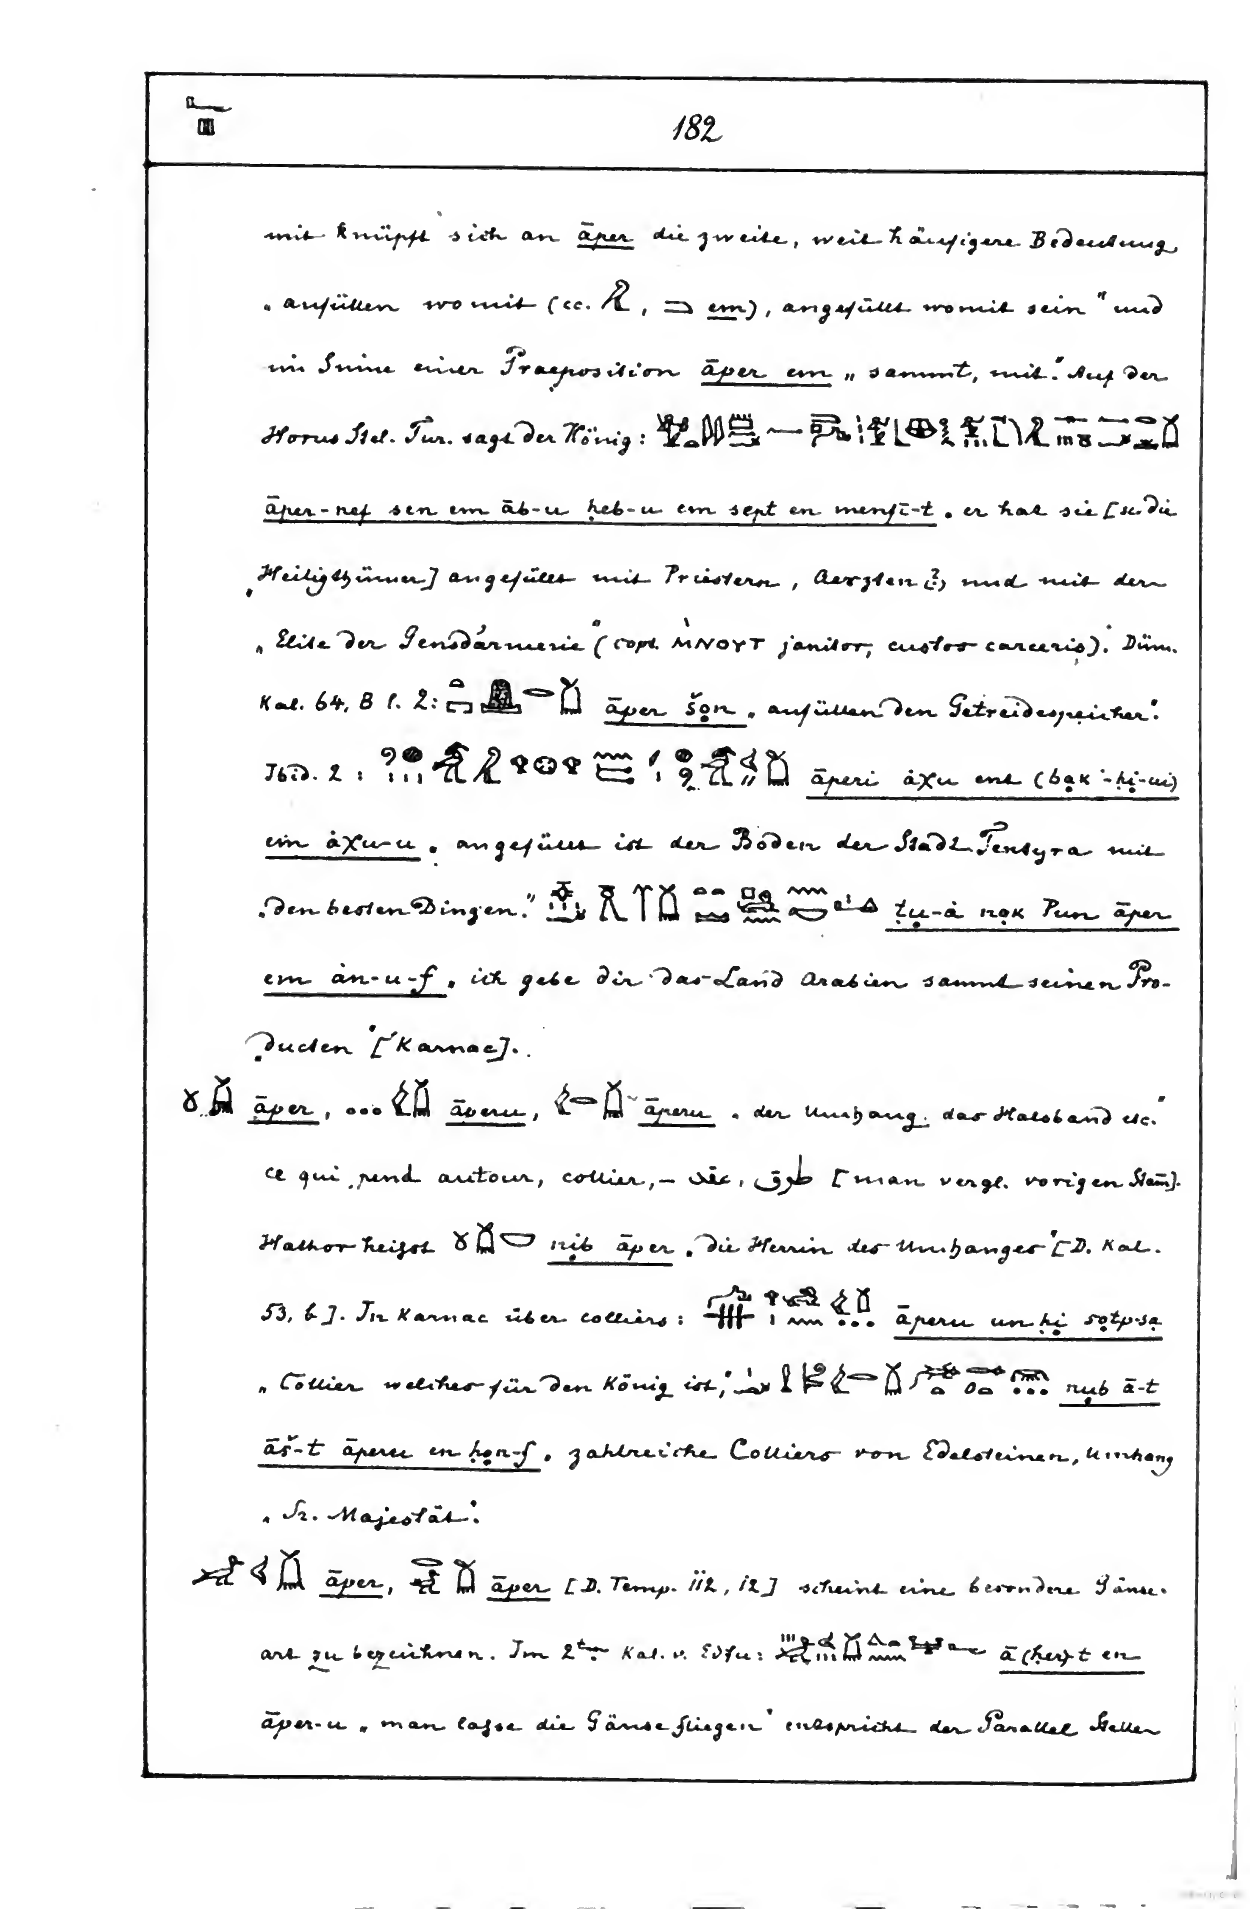 182
mit knüpft sich an āper die zweite, weit häufigere Bedeutung
„anfüllen womit (cc. , em), angefüllt womit sein" und
im Sinne einer Praeposition āper em „sammt, mit". Auf der
Horus Stel. Tur. sagt der König:
āper-nef sen em āb-u ḥeb-u em sept en menfi-t „er hat sie [sc. die
„Heiligthümer] angefüllt mit Priestern, Aerzten (?) und mit der
„Elite der Gensdarmerie" (copt. ⲙⲛⲟⲩⲧ janitor, custos carceris). Düm.
Kal. 64, B l. 2: āper šọn „anfüllen den Getreidespeicher".
Ibid. 2: āperi ȧχu ent (bạk-ḥị-ui)
em ȧχu-u „angefüllt ist der Boden der Stadt Tentyra mit
„den besten Dingen." ṭụ-ȧ nạk Pun āper
em ȧn-u-f „ich gebe dir das Land Arabien sammt seinen Pro-
„ducten" [Karnac].
āper, āperu, āperu „der Umhang, das Halsband etc."
ce qui pend autour, collier, – عقد, طوق [man vergl. vorigen Stam̄].
Hathor heifst nịb āper „die Herrin des Umhanges" [D. Kal.
53, b]. In Karnac über colliers: āperu un ḥị sọtp-sạ
„Collier welches für den König ist", nụb ā-t
āš-t āperu en ḥọn-f „zahlreiche Colliers von Edelsteinen, Umhang
„Sr. Majestät".
āper, āper [D. Temp. II2, 12] scheint eine besondere Gänse-
art zu bezeichnen. Im 2ten Kal. v. Edfu: ā(ḥer)-t en
āper-u „man lafse die Gänse fliegen" entspricht der Parallel Stellen